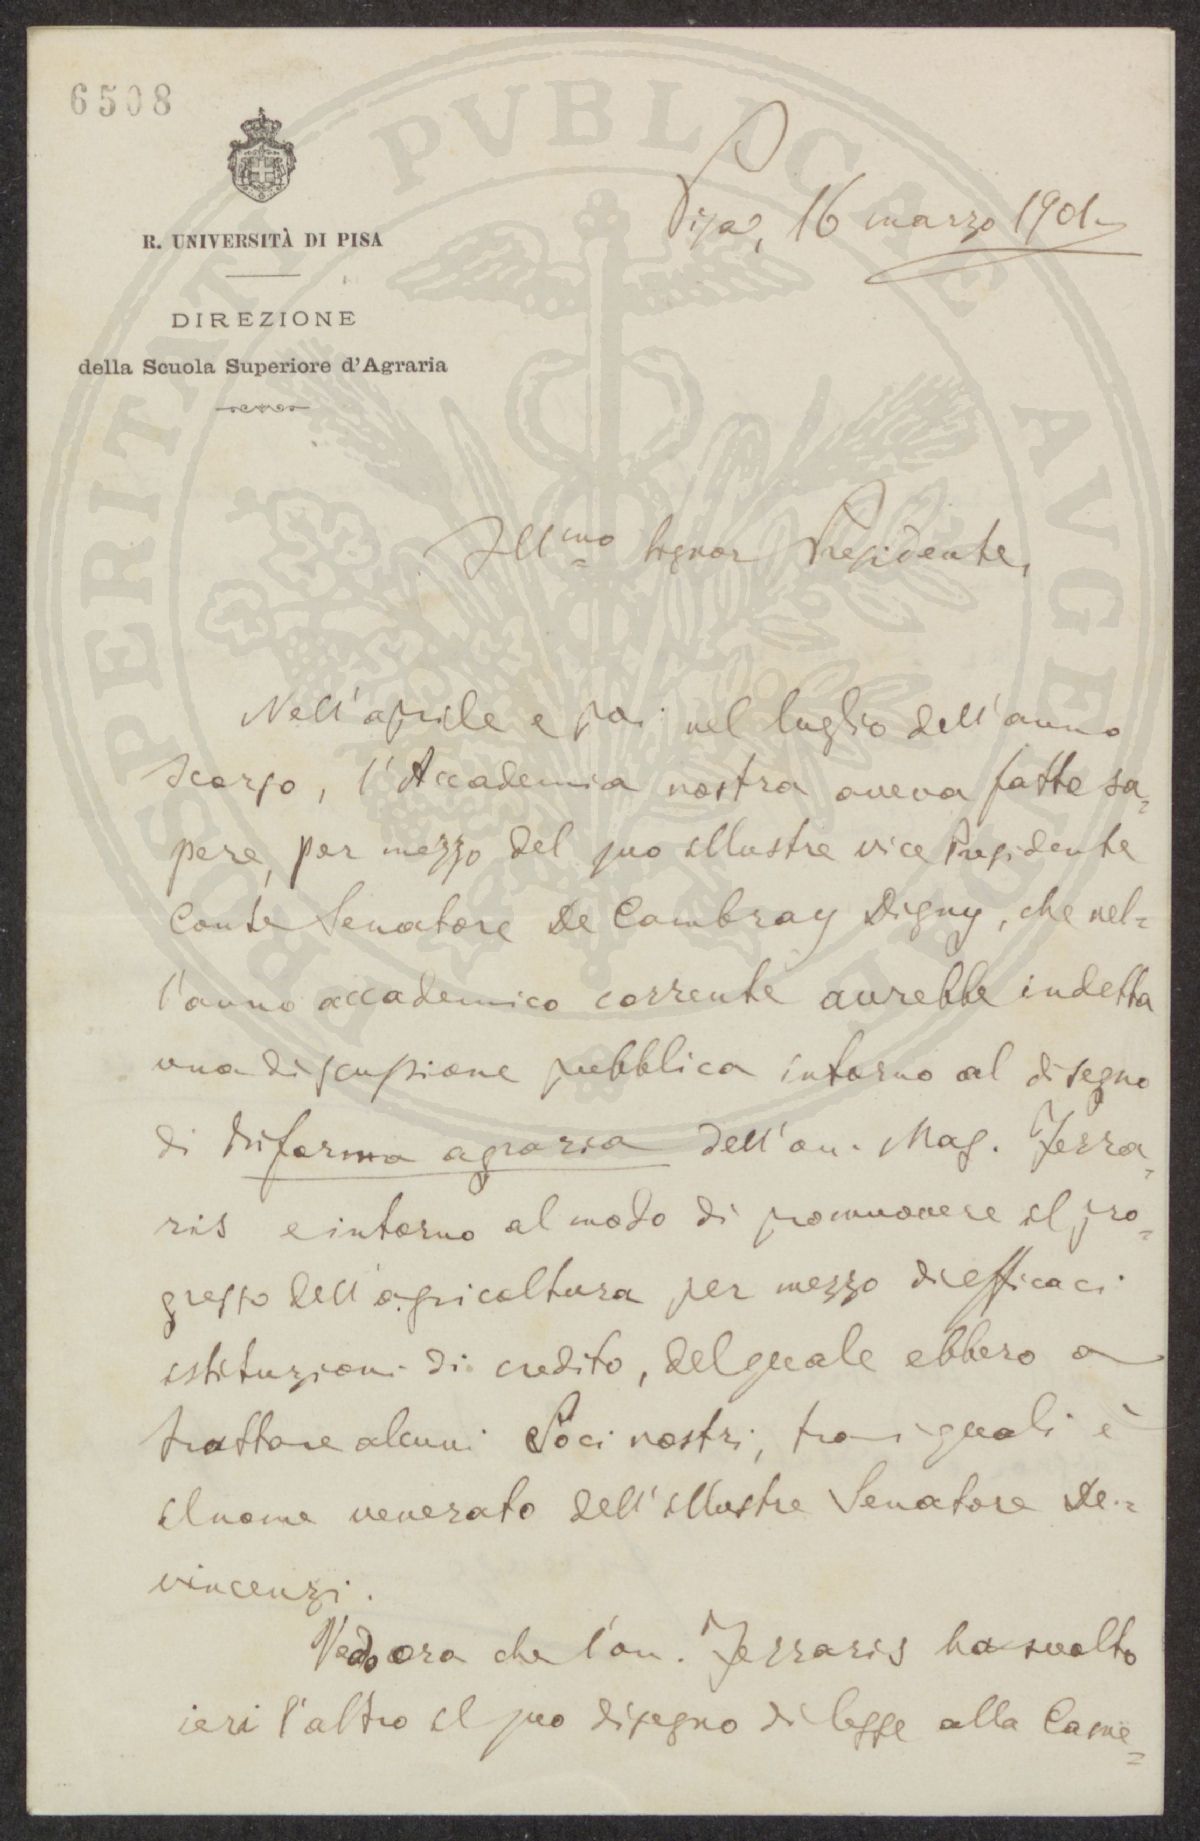 6508
R. UNIVERSITÀ DI PISA
DIREZIONE
della Scuola Superiore d'Agraria
Pisa, 16 marzo 1901
Ill.mo Signor Presidente,
Nell'aprile e poi nel luglio dell'anno
scorso, l'Accademia nostra aveva fatto sa-
pere, per mezzo del suo illustre vice Presidente
Conte Senatore De Cambray Digny, che nel-
l'anno accademico corrente avrebbe indetta
una discussione pubblica intorno al disegno
di Riforma agraria dell'on. Mag. Ferra-
ris e intorno al modo di promuovere il pro-
gresso dell'agricoltura per mezzo di efficaci
istituzioni di credito, del quale ebbero a
trattare alcuni Soci nostri, tra i quali è
il nome venerato dell'illustre Senatore De-
vincenzi.
Vedo ora che l'on. Ferraris ha svolto
ieri l'altro il suo disegno di legge alla Came-
PROSPERITATI PVBLICAE AVGENDAE